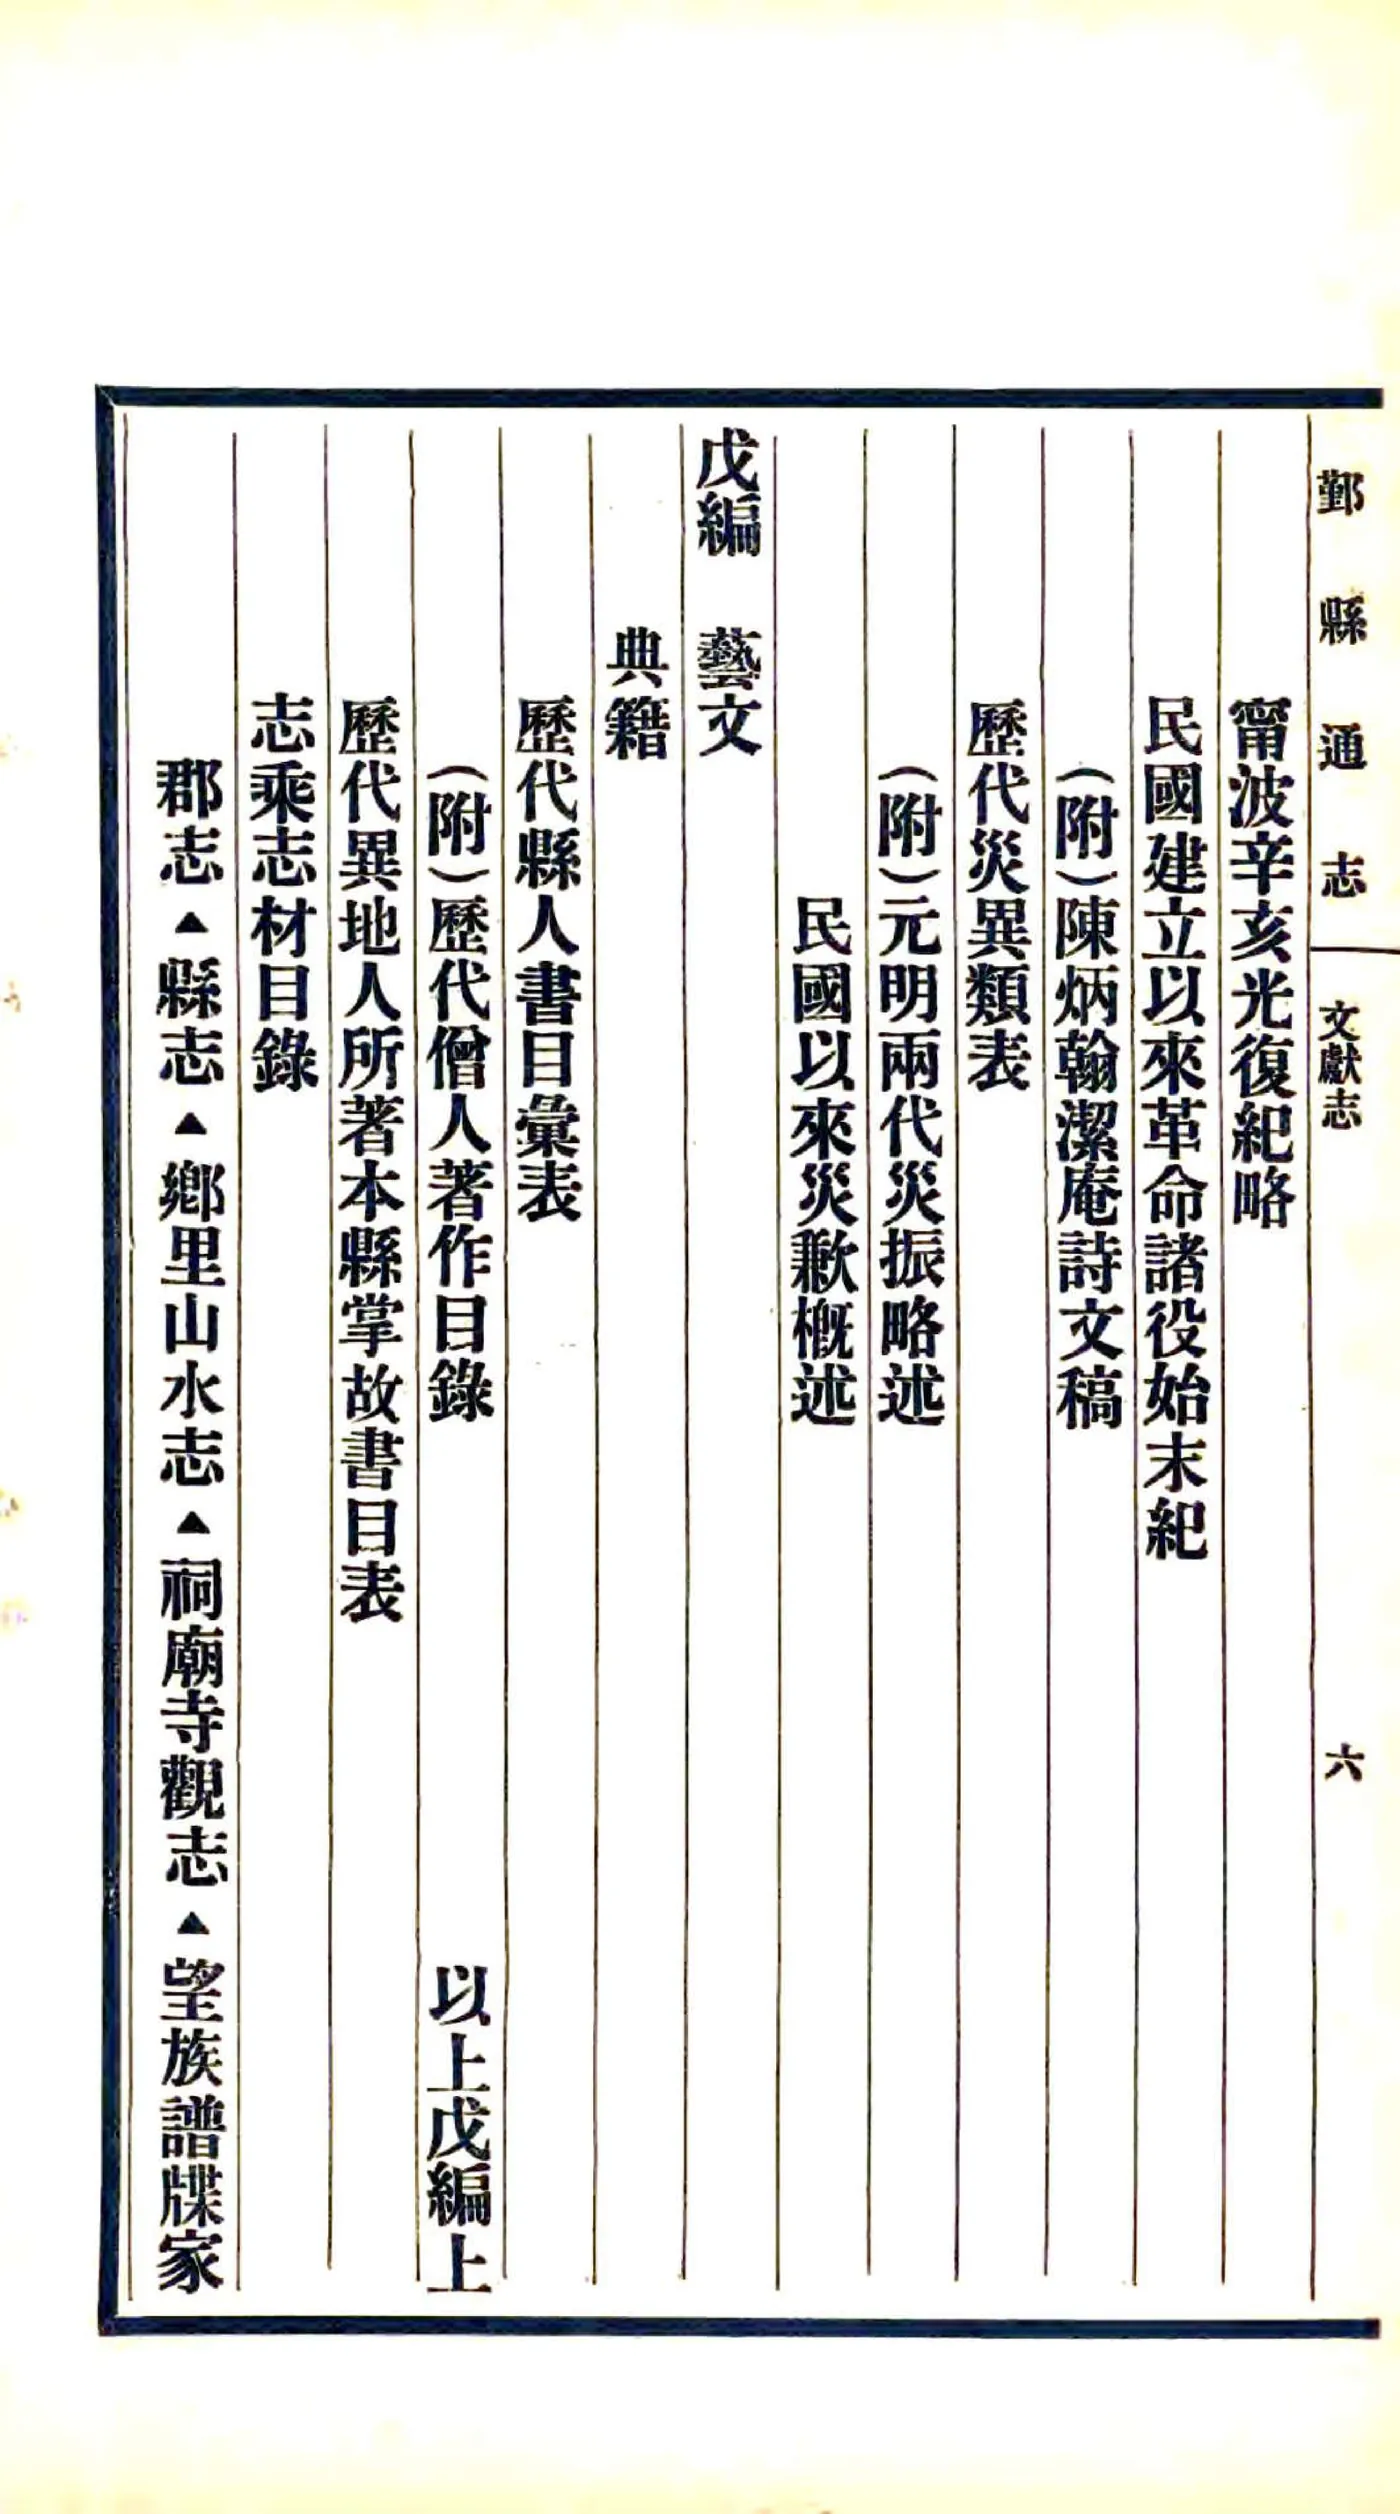 鄞縣通志 文獻志 六
甯波辛亥光復紀略
民國建立以來革命諸役始末紀
（附）陳炳翰潔庵詩文稿
歷代災異類表
（附）元明兩代災振略述
民國以來災歉概述
戊編 藝文
典籍
歷代縣人書目彙表
（附）歷代僧人著作目錄 以上戊編上
歷代異地人所著本縣掌故書目表
志乘志材目錄
郡志▲縣志▲鄉里山水志▲祠廟寺觀志▲望族譜牒家